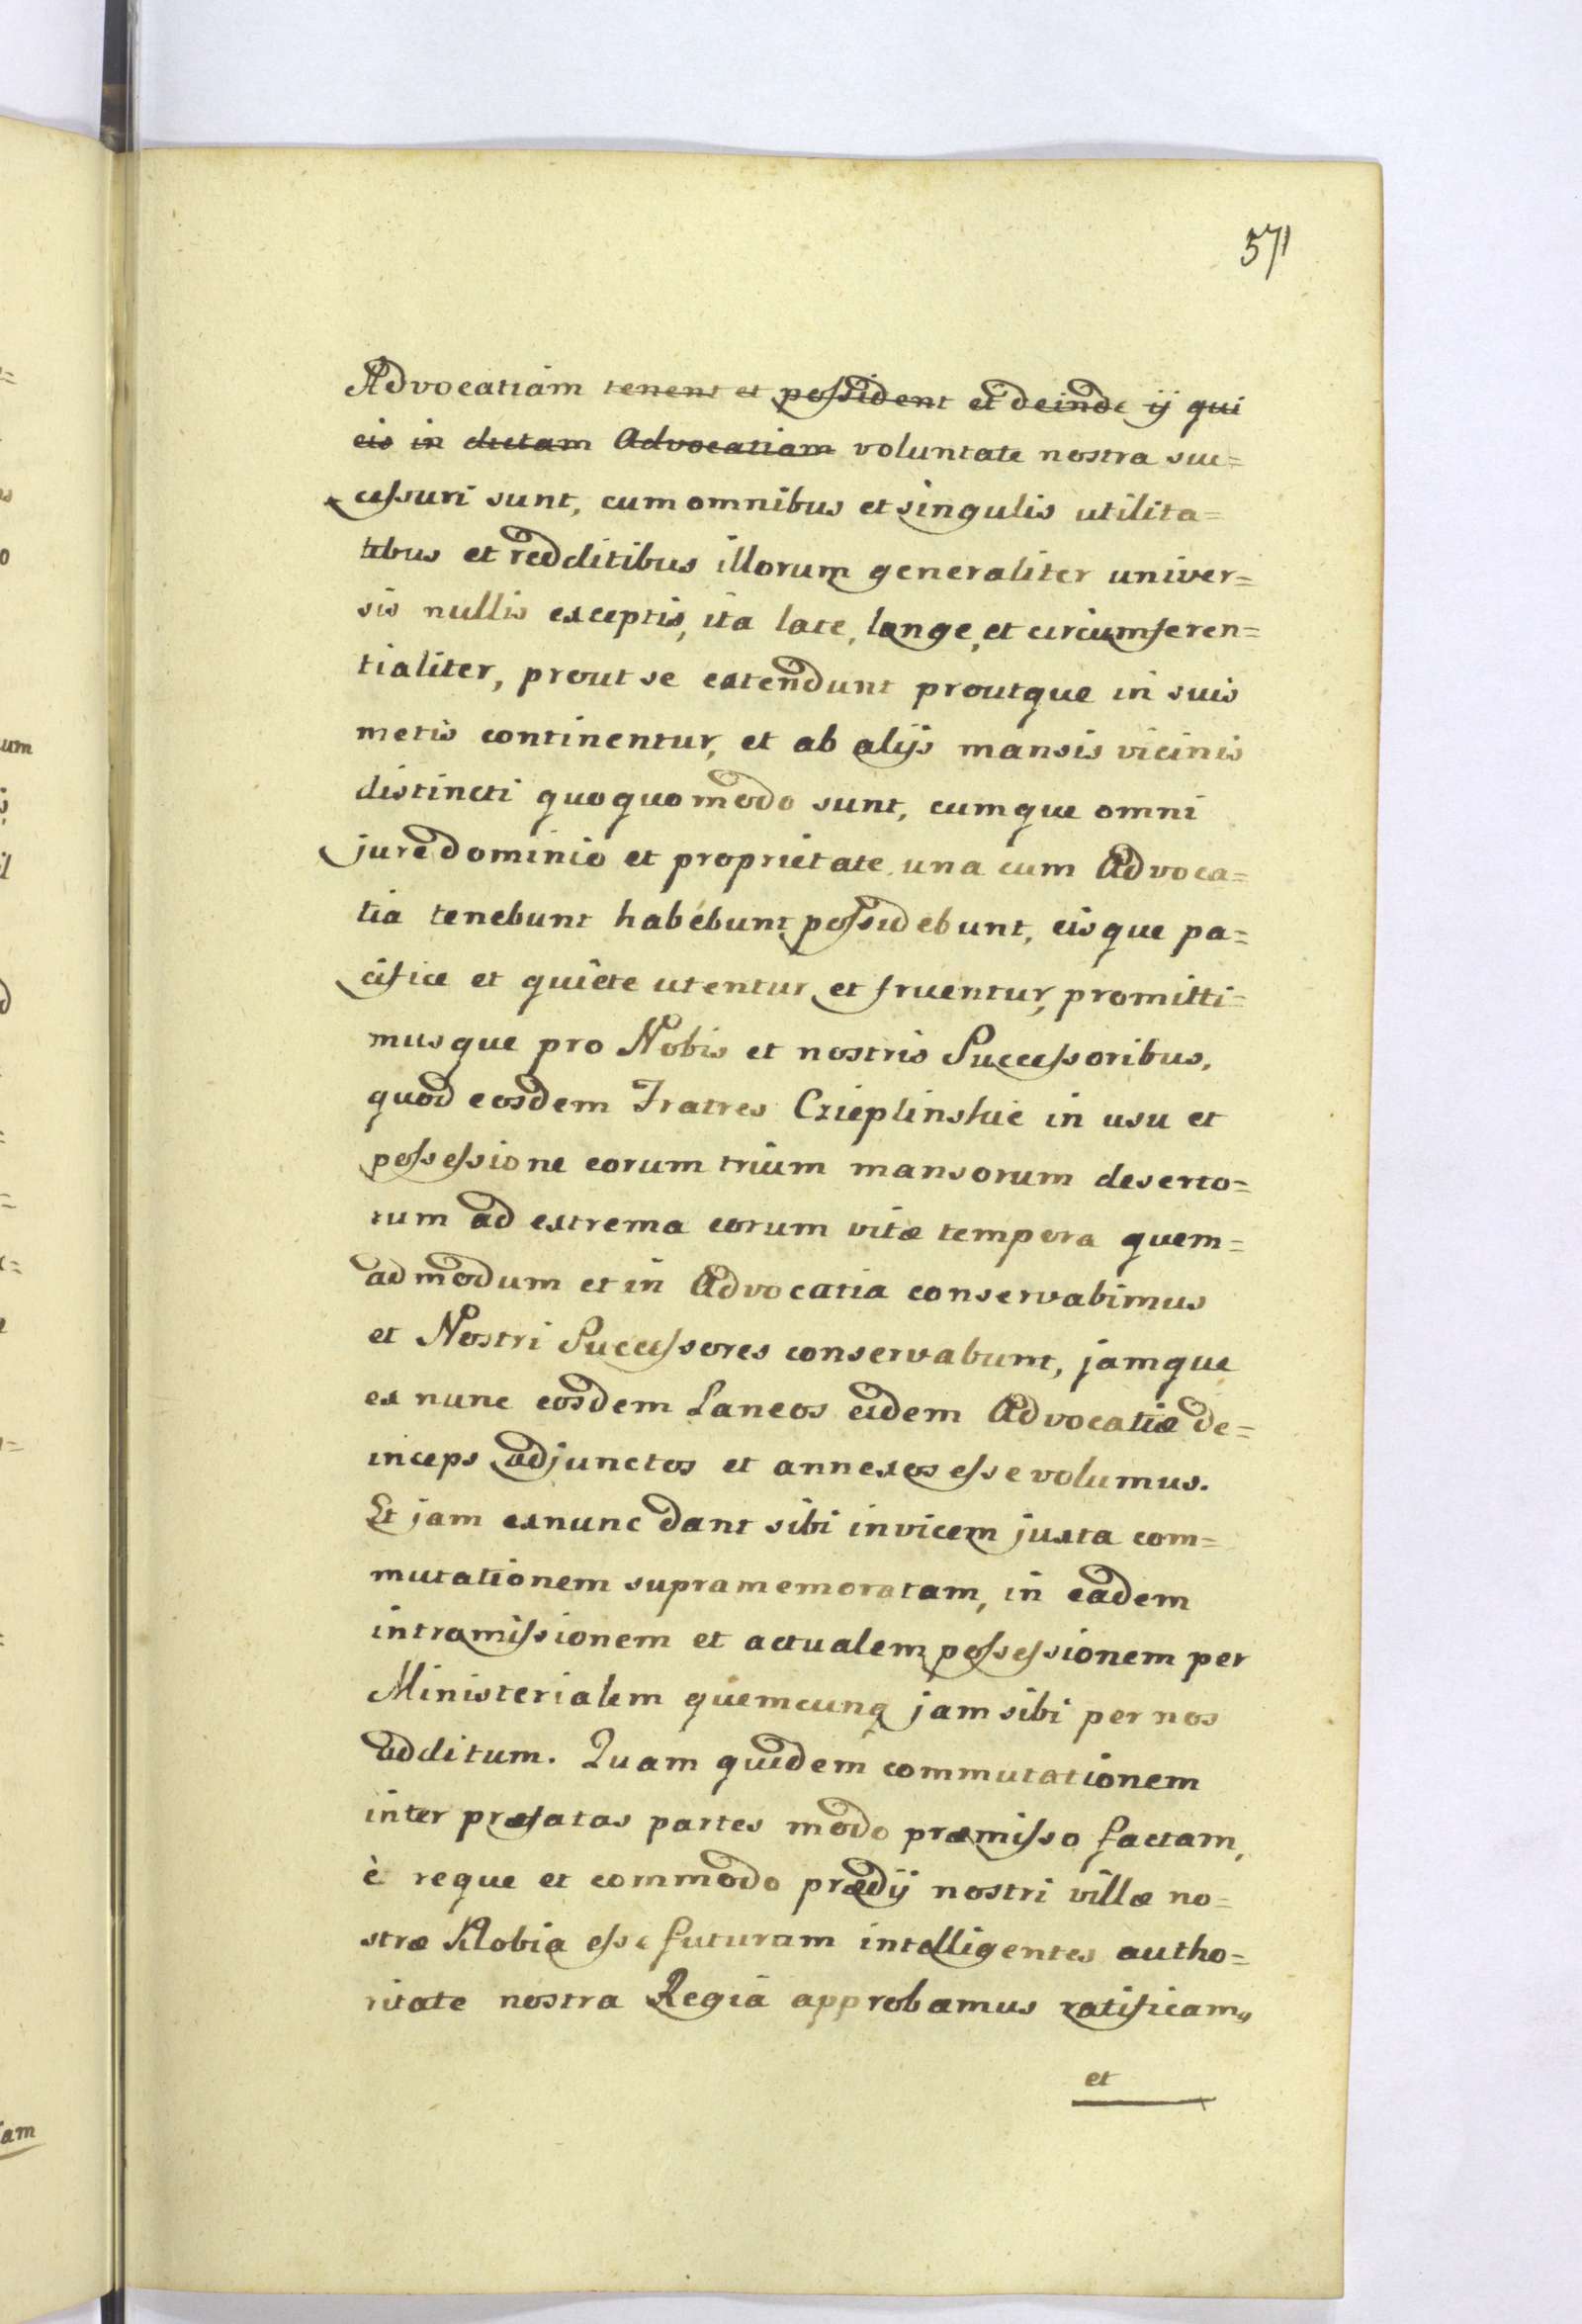 571
Advocatiam tenent et possident et deinde ij qui
eis in dictam Advocatiam voluntate nostra suc=
cessuri sunt, cum omnibus et singulis utilita=
tibus et redditibus illorum generaliter univer=
sis nullis exceptis, ita late, longe, et circumferen=
tialiter, prout se extendunt proutque in suis
metis continentur, et ab alijs mansis vicinis
distincti quoquomodo sunt, cumque omni
jure dominio et proprietate una cum Advoca=
tia tenebunt habebunt possidebunt, eisque pa=
cifice et quiete utentur et fruentur, promitti=
musque pro Nobis et nostris Successoribus,
quod eosdem Fratres Czieplinskie in usu et
possessione eorum trium mansorum deserto=
rum ad extrema eorum vitæ tempora quem=
admodum et in Advocatia conservabimus
et Nostri Successores conservabunt, jamque
ex nunc eosdem Laneos eidem Advocatiæ de=
inceps adjunctos et annexos esse volumus.
Et jam exnunc dant sibi invicem juxta com=
mutationem supramemoratam, in eadem
intromissionem et actualem possessionem per
Ministerialem quemcunq jam sibi per nos
additum. Quam quidem commutationem
inter præfatas partes modo præmisso factam,
è reque et commodo prædij nostri villæ no=
stræ Klobia esse futuram intelligentes autho=
ritate nostra Regia approbamus ratificam9
et
um
am